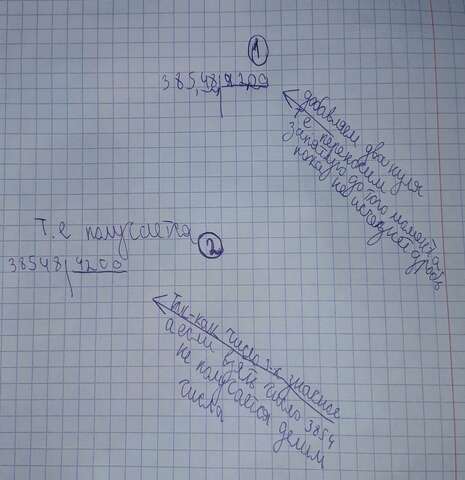 1
385,48 4200
добавляем два нуля
т.е переносим
запятую до того момента
пока не исчезнет дробь
Т.е получается
2
38548 4200
Так-как число 4-х значное
а если взять число 3854
не получается делим
числа